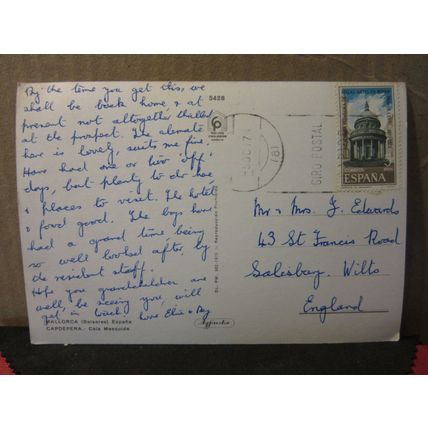 By the time you get this, we
shall be back home, & at
present not altogether thrilled
at the prospect. The climate
here is lovely, suits me fine.
Have had one or two "off"
days, but plenty to do here
& places to visit. The hotel
& food good. The boys have
had a grand time being
so well looked after by
the resident staff.
Hope you & grandchildren are
well, be seeing you, will
get in touch. Love Elsie & Reg
MALLORCA (Baleares) España
CAPDEPERA.- Cala Mesquida
5428
GIRO POSTAL
CORREOS
ESPAÑA
Mr & Mrs J. Edwards
43 St Francis Road
Salesbay. Wilts
England